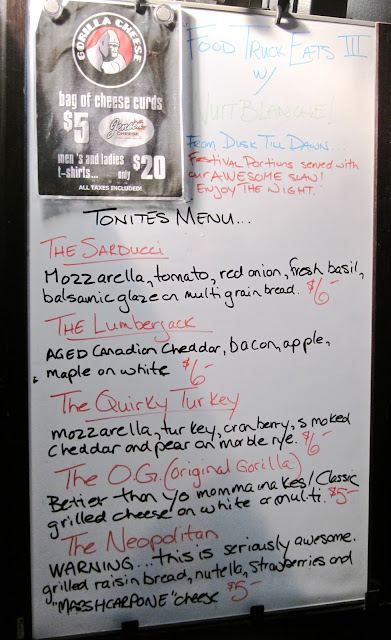 GORILLA CHEESE
bag of cheese curds
$5
CHEESE
men's and ladies
t-shirts... only $20
ALL TAXES INCLUDED!
FOOD TRUCK EATS III
w/
NUIT BLANCHE!
FROM DUSK TILL DAWN...
FESTIVAL PORTIONS served with
our AWESOME SLAW!
ENJOY THE NIGHT.
TONITES MENU...
THE SARDUCCI
Mozzarella, tomato, red onion, fresh basil,
balsamic glaze on multigrain bread. $6-
THE Lumberjack
AGED Canadian Cheddar, bacon, apple,
maple on white $6-
The Quirky Turkey
mozzarella, turkey, cranberry, smoked
cheddar and pear on marble rye. $6-
The O.G. (original Gorilla)
Better than yo momma makes! Classic
grilled cheese on white or multi. $5-
The Neopolitan
WARNING... this is seriously awesome.
grilled raisin bread, nutella, strawberries and
"MARSHCARPONE" cheese $5-